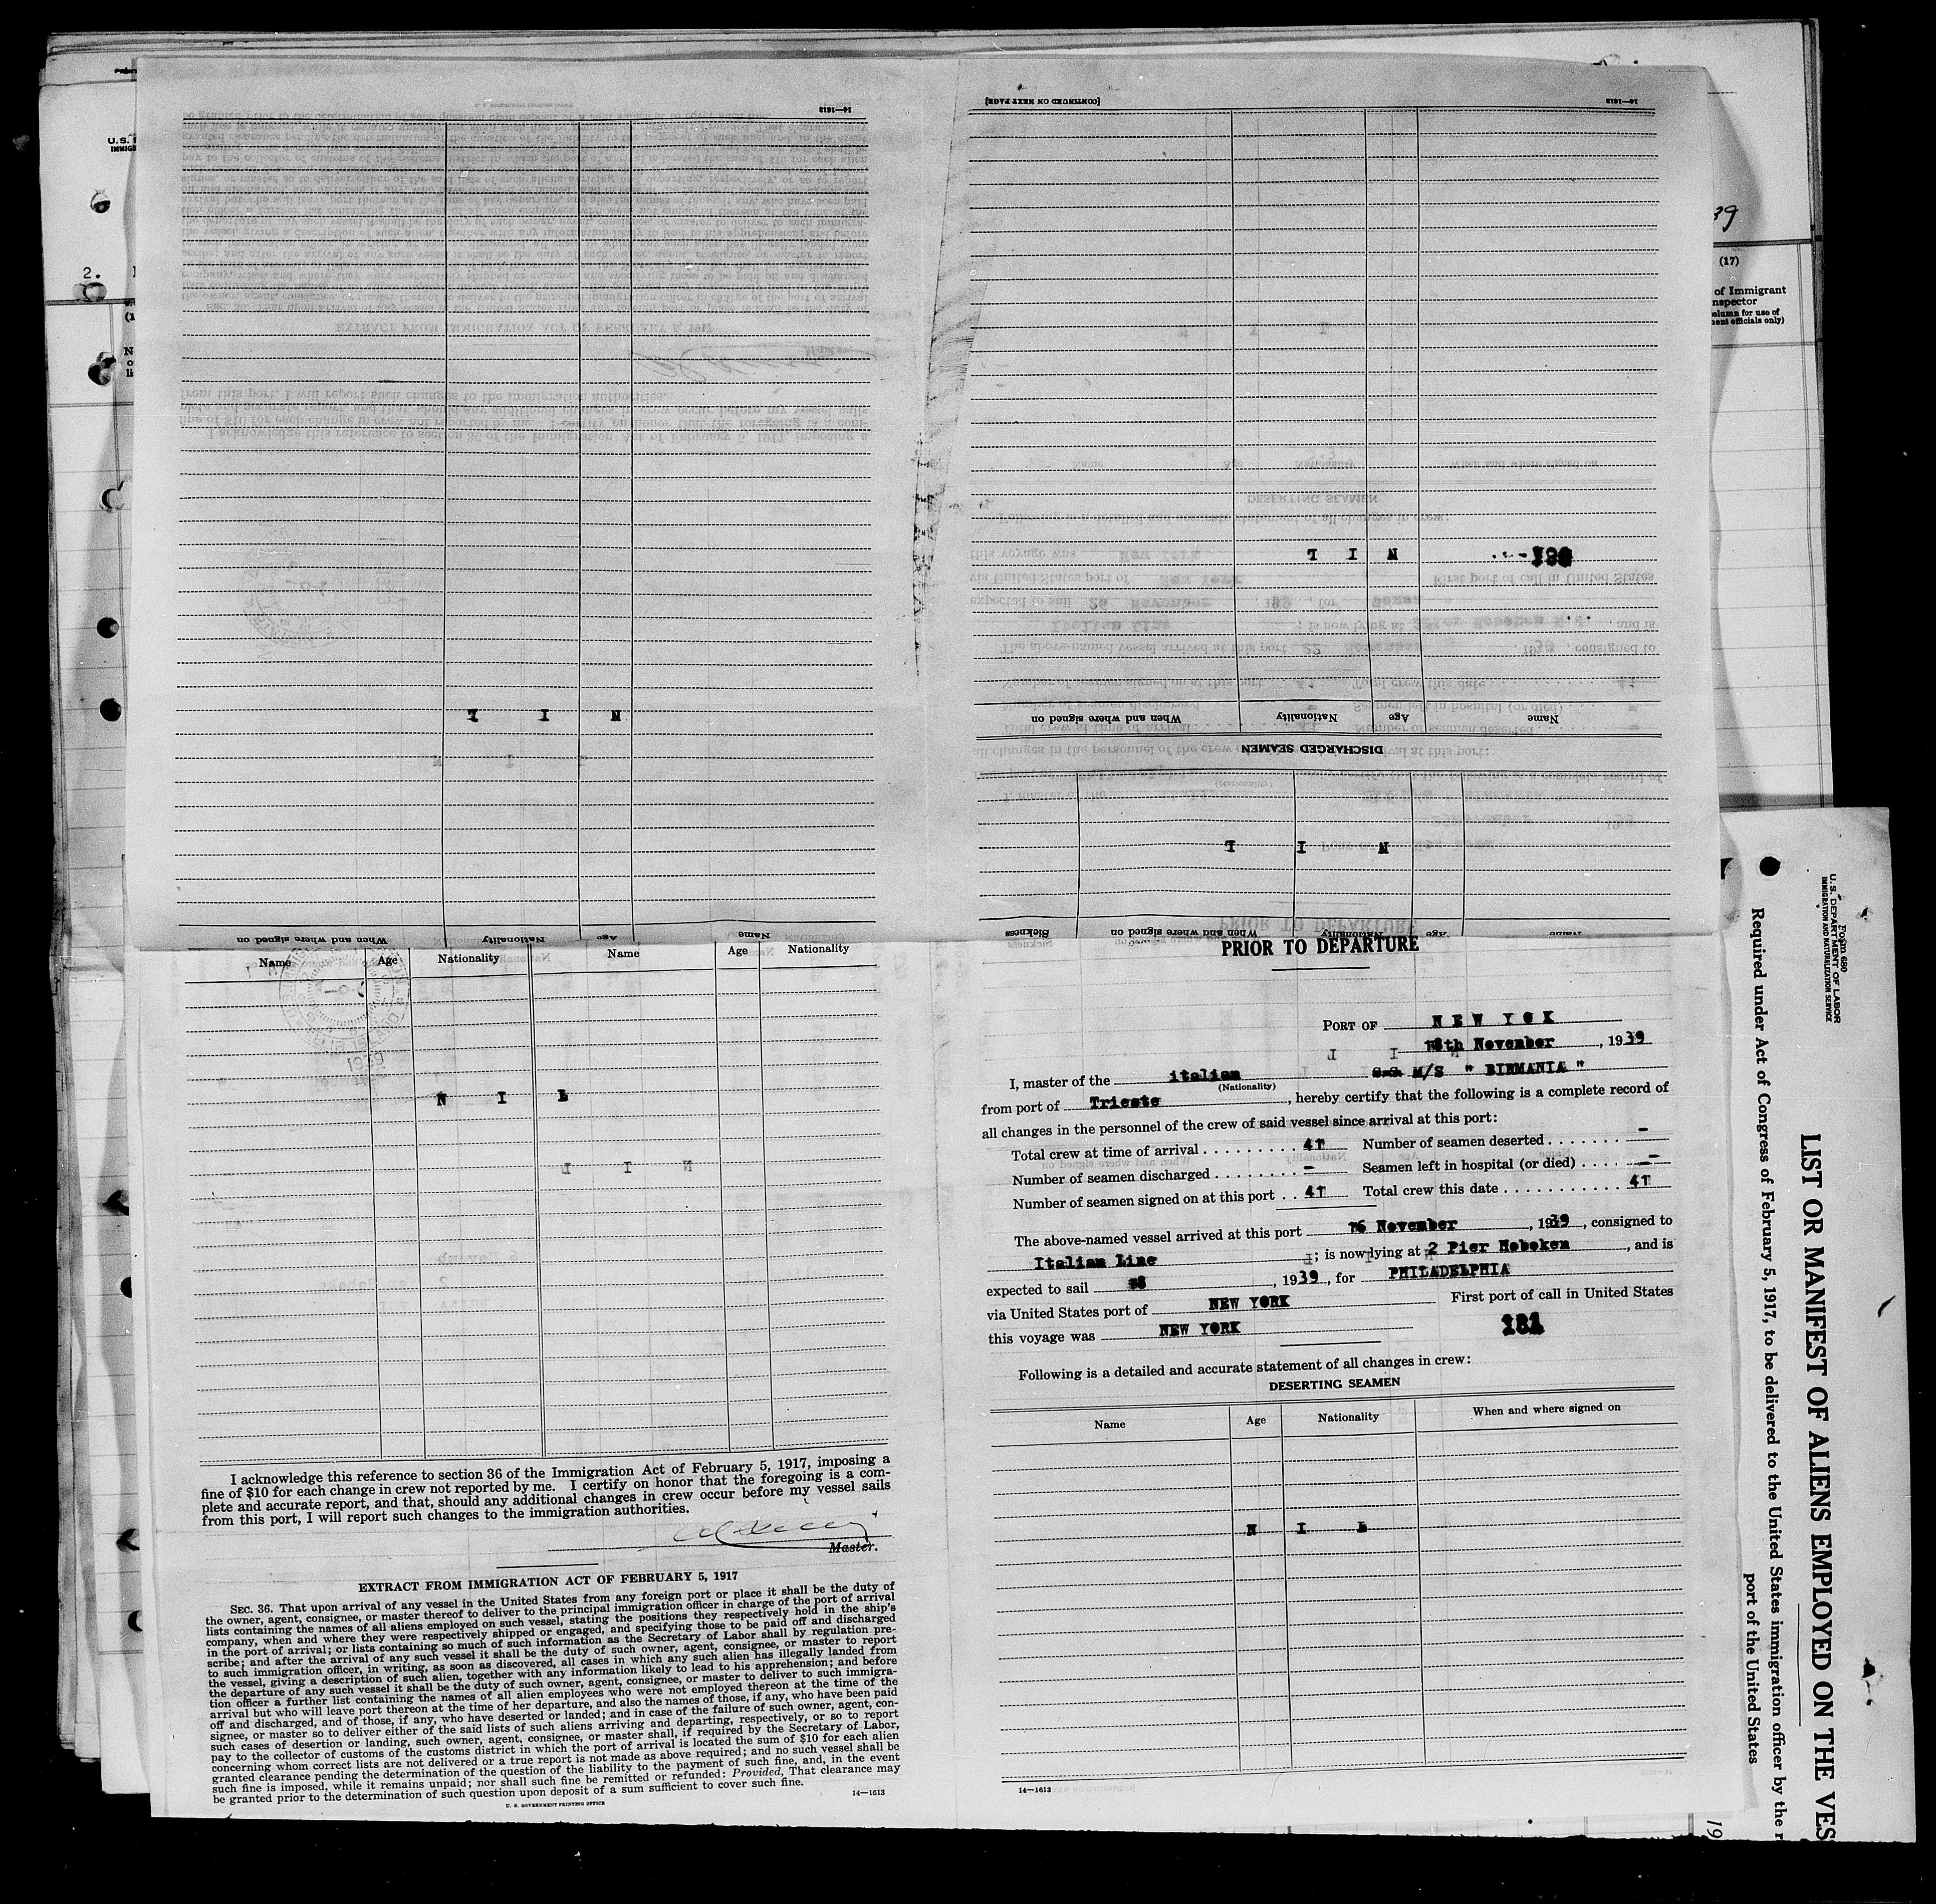 PRIOR TO DEPARTURE
PORT OF NEW YOK
18th November, 1939
I, master of the italian S.S. M/S " BIRMANIA "
(Nationality)
from port of Trieste, hereby certify that the following is a complete record of
all changes in the personnel of the crew of said vessel since arrival at this port:
Total crew at time of arrival . . . . . . . . . 41 Number of seamen deserted . . . . . . . -
Number of seamen discharged . . . . . . . . - Seamen left in hospital (or died) . . . . -
Number of seamen signed on at this port . . 41 Total crew this date . . . . . . . . . . . 41
The above-named vessel arrived at this port 16 November, 1939, consigned to
Italian Line; is now lying at 2 Pier Hoboken, and is
expected to sail , 1939, for PHILADELPHIA
via United States port of NEW YORK First port of call in United States
this voyage was NEW YORK
181
Following is a detailed and accurate statement of all changes in crew:
DESERTING SEAMEN
Name Age Nationality When and where signed on
N I L
14—1613
[CONTINUED ON NEXT PAGE]
14—1613
N I L
Name Age Nationality When and where signed on
DISCHARGED SEAMEN
N I L
Name Age Nationality When and where signed on Sickness
14—1613
N I L
Name Age Nationality When and where signed on
Name Age Nationality Name Age Nationality
N I L
I acknowledge this reference to section 36 of the Immigration Act of February 5, 1917, imposing a
fine of $10 for each change in crew not reported by me. I certify on honor that the foregoing is a com-
plete and accurate report, and that, should any additional changes in crew occur before my vessel sails
from this port, I will report such changes to the immigration authorities.
Master.
EXTRACT FROM IMMIGRATION ACT OF FEBRUARY 5, 1917
SEC. 36. That upon arrival of any vessel in the United States from any foreign port or place it shall be the duty of
the owner, agent, consignee, or master thereof to deliver to the principal immigration officer in charge of the port of arrival
lists containing the names of all aliens employed on such vessel, stating the positions they respectively hold in the ship's
company, when and where they were respectively shipped or engaged, and specifying those to be paid off and discharged
in the port of arrival; or lists containing so much of such information as the Secretary of Labor shall by regulation pre-
scribe; and after the arrival of any such vessel it shall be the duty of such owner, agent, consignee, or master to report
to such immigration officer, in writing, as soon as discovered, all cases in which any such alien has illegally landed from
the vessel, giving a description of such alien, together with any information likely to lead to his apprehension; and before
the departure of any such vessel it shall be the duty of such owner, agent, consignee, or master to deliver to such immigra-
tion officer a further list containing the names of all alien employees who were not employed thereon at the time of the
arrival but who will leave port thereon at the time of her departure, and also the names of those, if any, who have been paid
off and discharged, and of those, if any, who have deserted or landed; and in case of the failure of such owner, agent, con-
signee, or master so to deliver either of the said lists of such aliens arriving and departing, respectively, or so to report
such cases of desertion or landing, such owner, agent, consignee, or master shall, if required by the Secretary of Labor,
pay to the collector of customs of the customs district in which the port of arrival is located the sum of $10 for each alien
concerning whom correct lists are not delivered or a true report is not made as above required; and no such vessel shall be
granted clearance pending the determination of the question of the liability to the payment of such fine, and, in the event
such fine is imposed, while it remains unpaid; nor shall such fine be remitted or refunded: Provided, That clearance may
be granted prior to the determination of such question upon deposit of a sum sufficient to cover such fine.
U. S. GOVERNMENT PRINTING OFFICE
14—1613
Form 680
U. S. DEPARTMENT OF LABOR
IMMIGRATION AND NATURALIZATION SERVICE
LIST OR MANIFEST OF ALIENS EMPLOYED ON THE VES
Required under Act of Congress of February 5, 1917, to be delivered to the United States immigration officer by the r
port of the United States
39
(17)
of Immigrant
nspector
olumn for use of
ment officials only)
U.S.
IMMIG
2.
19